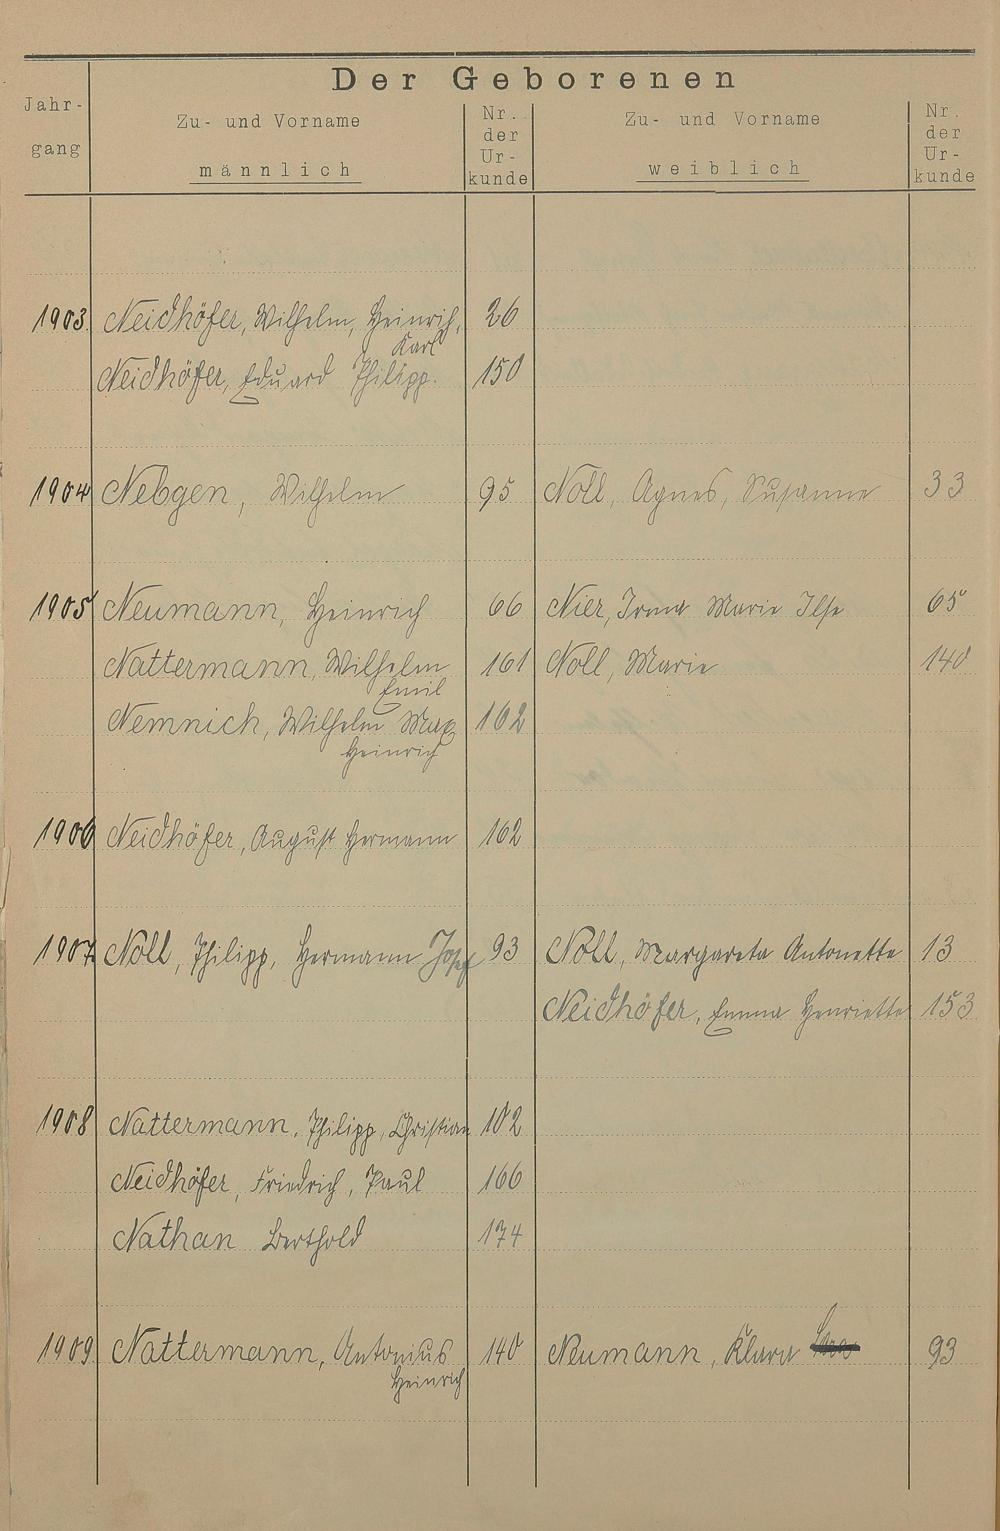 Der Geborenen
Jahr-
gang
Zu- und Vorname
männlich
Nr.
der
Ur-
kunde
Zu- und Vorname
weiblich
Nr.
der
Ur-
kunde
1903 Neidhöfer, Wilhelm, Heinrich, 26
Karl
Neidhöfer, Eduard Philipp. 150
1904 Nebgen, Wilhelm 95 Noll, Agnes, Susanne 33
1905 Neumann, Heinrich 66 Nier, Irma Marie Ilse 65
Nattermann, Wilhelm 161 Noll, Marie 140
Emil
Nemnich, Wilhelm Max 162
Heinrich
1906 Neidhöfer, August Hermann 162
1907 Noll, Philipp, Hermann Josef 93 Noll, Margareta Antonette 13
Neidhöfer, Emma Henriette 153
1908 Nattermann, Philipp, Christian 102
Neidhöfer, Friedrich, Paul 166
Nathan Berthold 174
1909 Nattermann, Antonius 140 Neumann, Klara 93
Heinrich